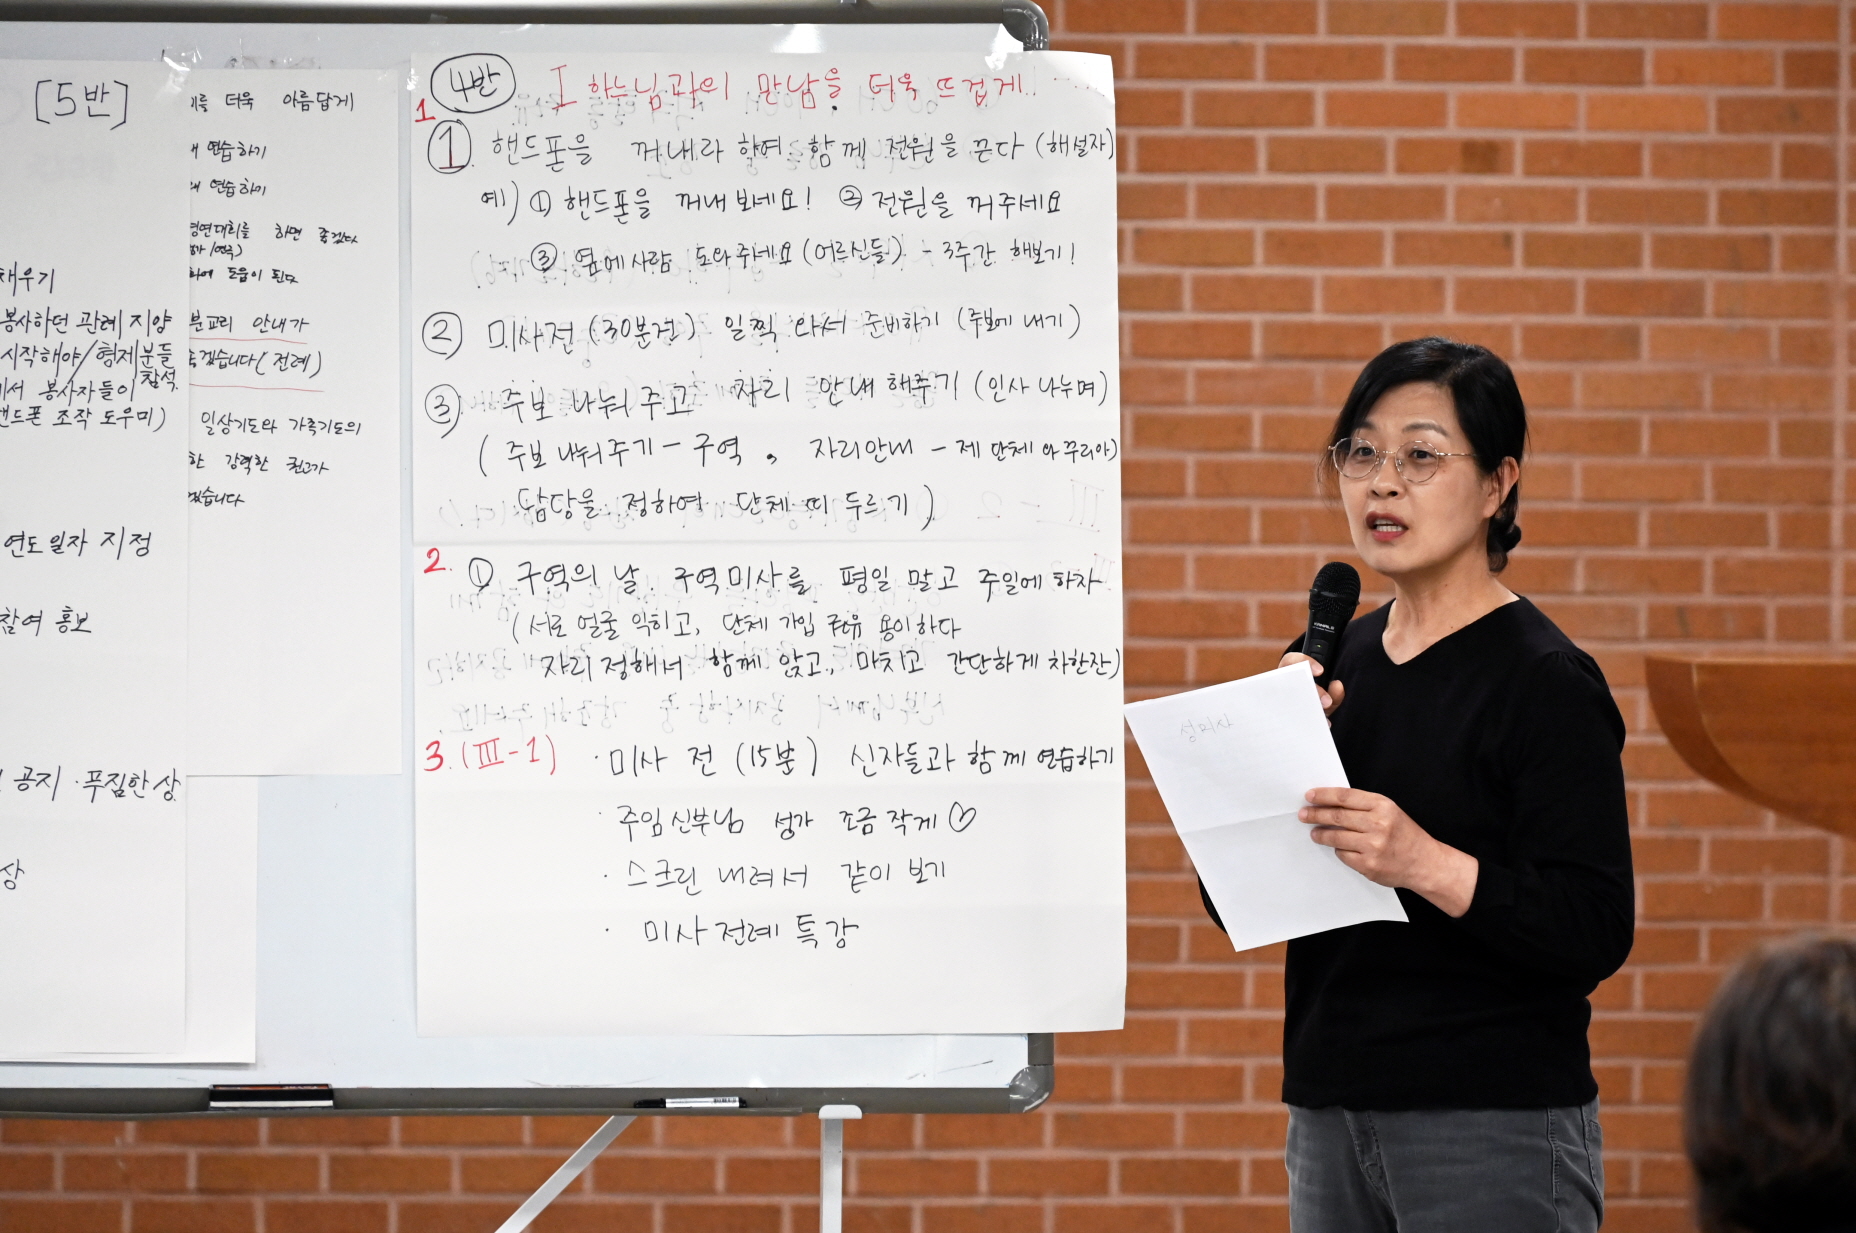 [5반]
채우기
봉사하던 관례 지양
시작해야/형제분들
참석
봉사자들이
핸드폰 조작 도우미)
연도일자 지정
참여 홍보
공지·푸짐한상
상
를 더욱 아름답게
연습하기
연습하기
경연대회를 하면 좋겠다
도움이 된다
분교리 안내가
좋겠습니다(전례)
일상기도와 가족기도의
강력한 권고가
겠습니다
4반 I 하느님과의 만남을 더욱 뜨겁게
1
① 핸드폰을 꺼내라 하여 함께 전원을 끈다 (해설자)
예) ① 핸드폰을 꺼내 보세요! ② 전원을 꺼주세요
③ 옆에사람 도와주세요 (어르신들) - 3주간 해보기!
② 미사전 (30분전) 일찍 와서 준비하기 (주보에 내기)
③ 주보 나눠 주고 자리 안내 해주기 (인사 나누며)
(주보 나눠주기 - 구역, 자리안내 - 제 단체와 꾸리아)
담당을 정하여 단체 띠 두르기)
2. ① 구역의 날 구역미사를 평일 말고 주일에 하자
(서로 얼굴 익히고, 단체 가입 권유 용이하다
자리 정해서 함께 앉고, 마치고 간단하게 차한잔)
3. (III-1) ·미사 전 (15분) 신자들과 함께 연습하기
·주임신부님 성가 조금 작게♡
·스크린 내려서 같이 보기
·미사전례 특강
성미사